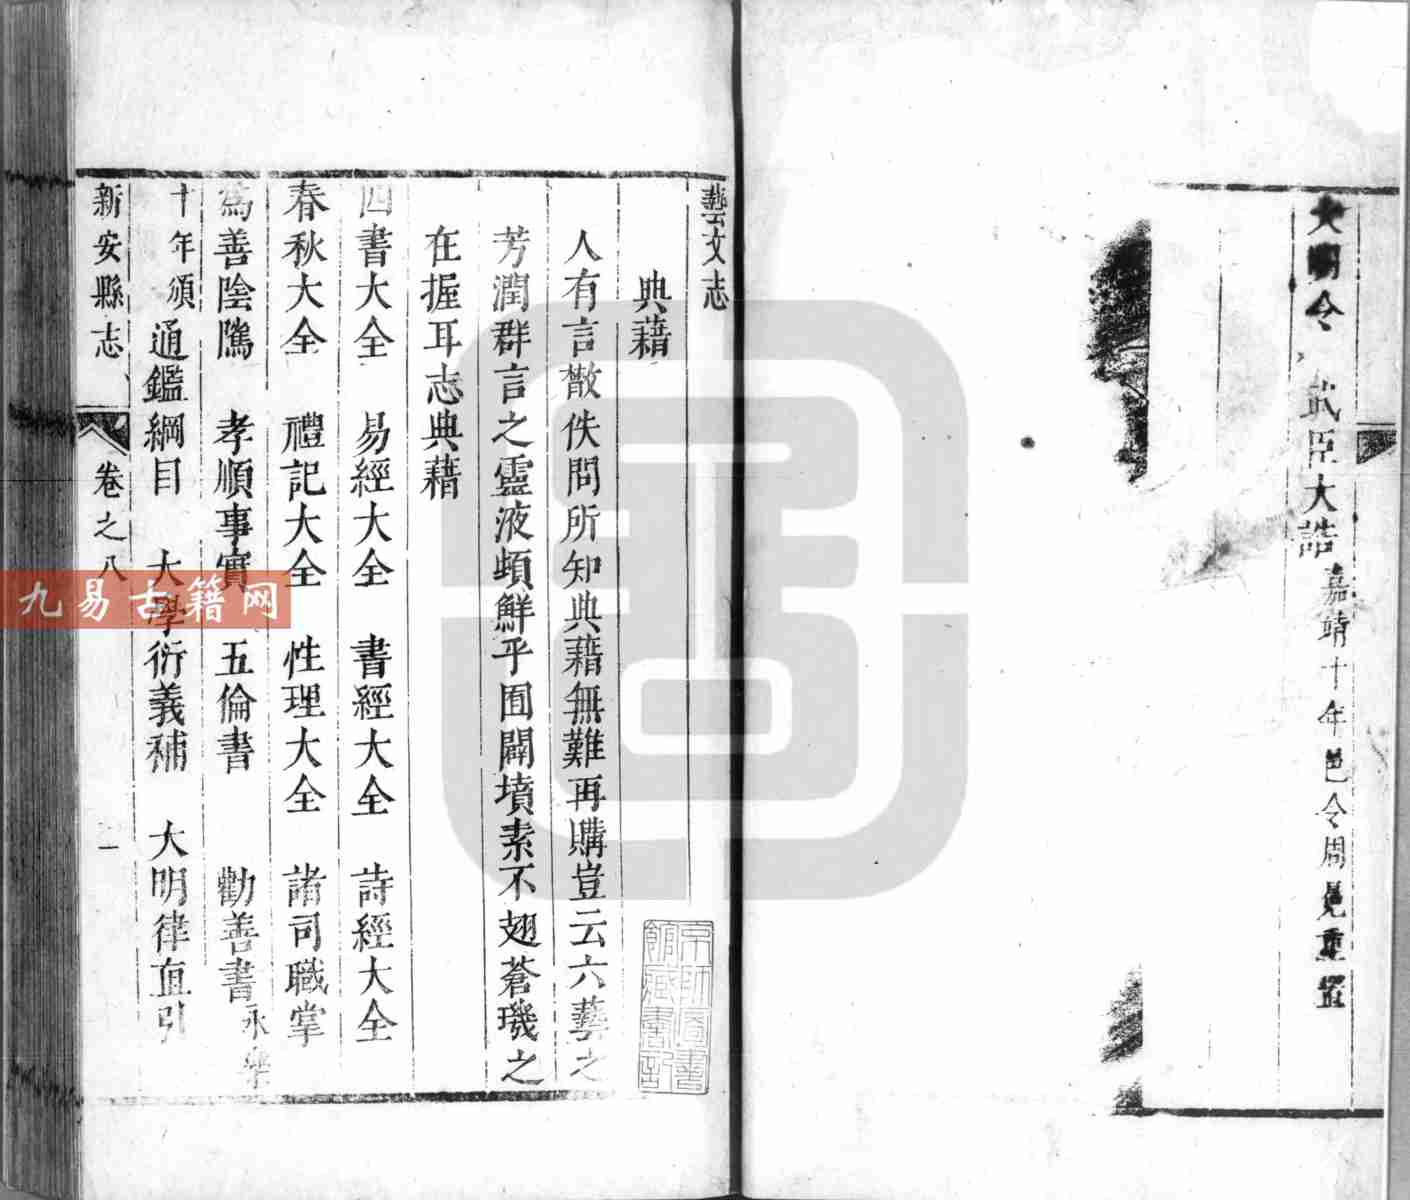 大明令 武臣大誥嘉靖十年邑令周冕重置
藝文志
典藉
人有言散佚問所知典藉無難再購豈云六藝之
芳潤群言之靈液頓鮮乎囿闢墳素不翅蒼璣之
在握耳志典藉
四書大全 易經大全 書經大全 詩經大全
春秋大全 禮記大全 性理大全 諸司職掌
為善陰隲 孝順事實 五倫書 勸善書永樂
十年頒 通鑑綱目 大學衍義補 大明律直引
新安縣志 卷之八 一
京師圖書
館藏書記
九易古籍网